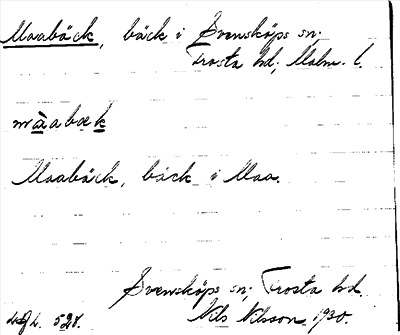 Maabäck, bäck i Svensköps sn;
Frosta hd, Malm. l.
màabæk
Maabäck, bäck i Maa.
Svensköps sn; Frosta hd.
Nils Nilsson. 1930.